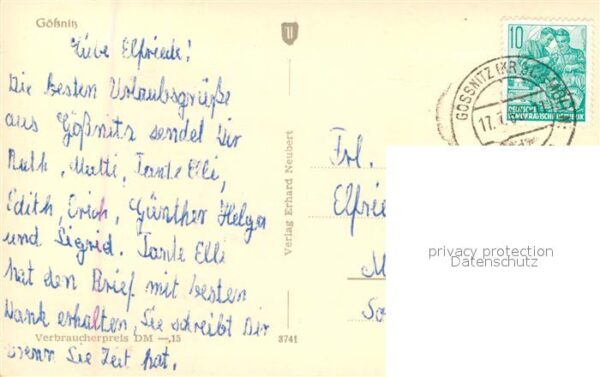 Gößnitz
Liebe Elfriede!
Die besten Urlaubsgrüße
aus Gößnitz sendet Dir
Ruth, Mutti, Tante Elli,
Edith, Erich, Günther Helga
und Sigrid. Tante Elli
hat den Brief mit besten
Dank erhalten, Sie schreibt Dir
wenn Sie Zeit hat.
Verbraucherpreis DM —,15
3741
Verlag Erhard Neubert
10
DEUTSCHE
DEMOKRATISCHE REPUBLIK
GÖSSNITZ (KR SCHMÖLLN)
17.7
Frl.
Elfrie
M
So
privacy protection
Datenschutz